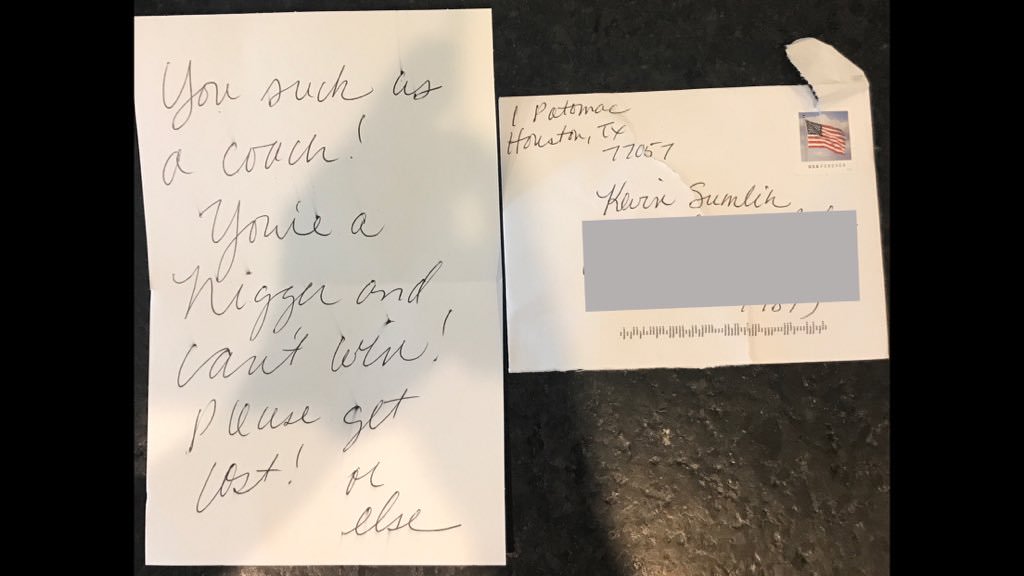 You suck as
a coach!
You're a
nigger and
can't win!
Please get
lost! or
else
1 Potomac
Houston, TX
77057
Kevin Sumlin
USA FOREVER